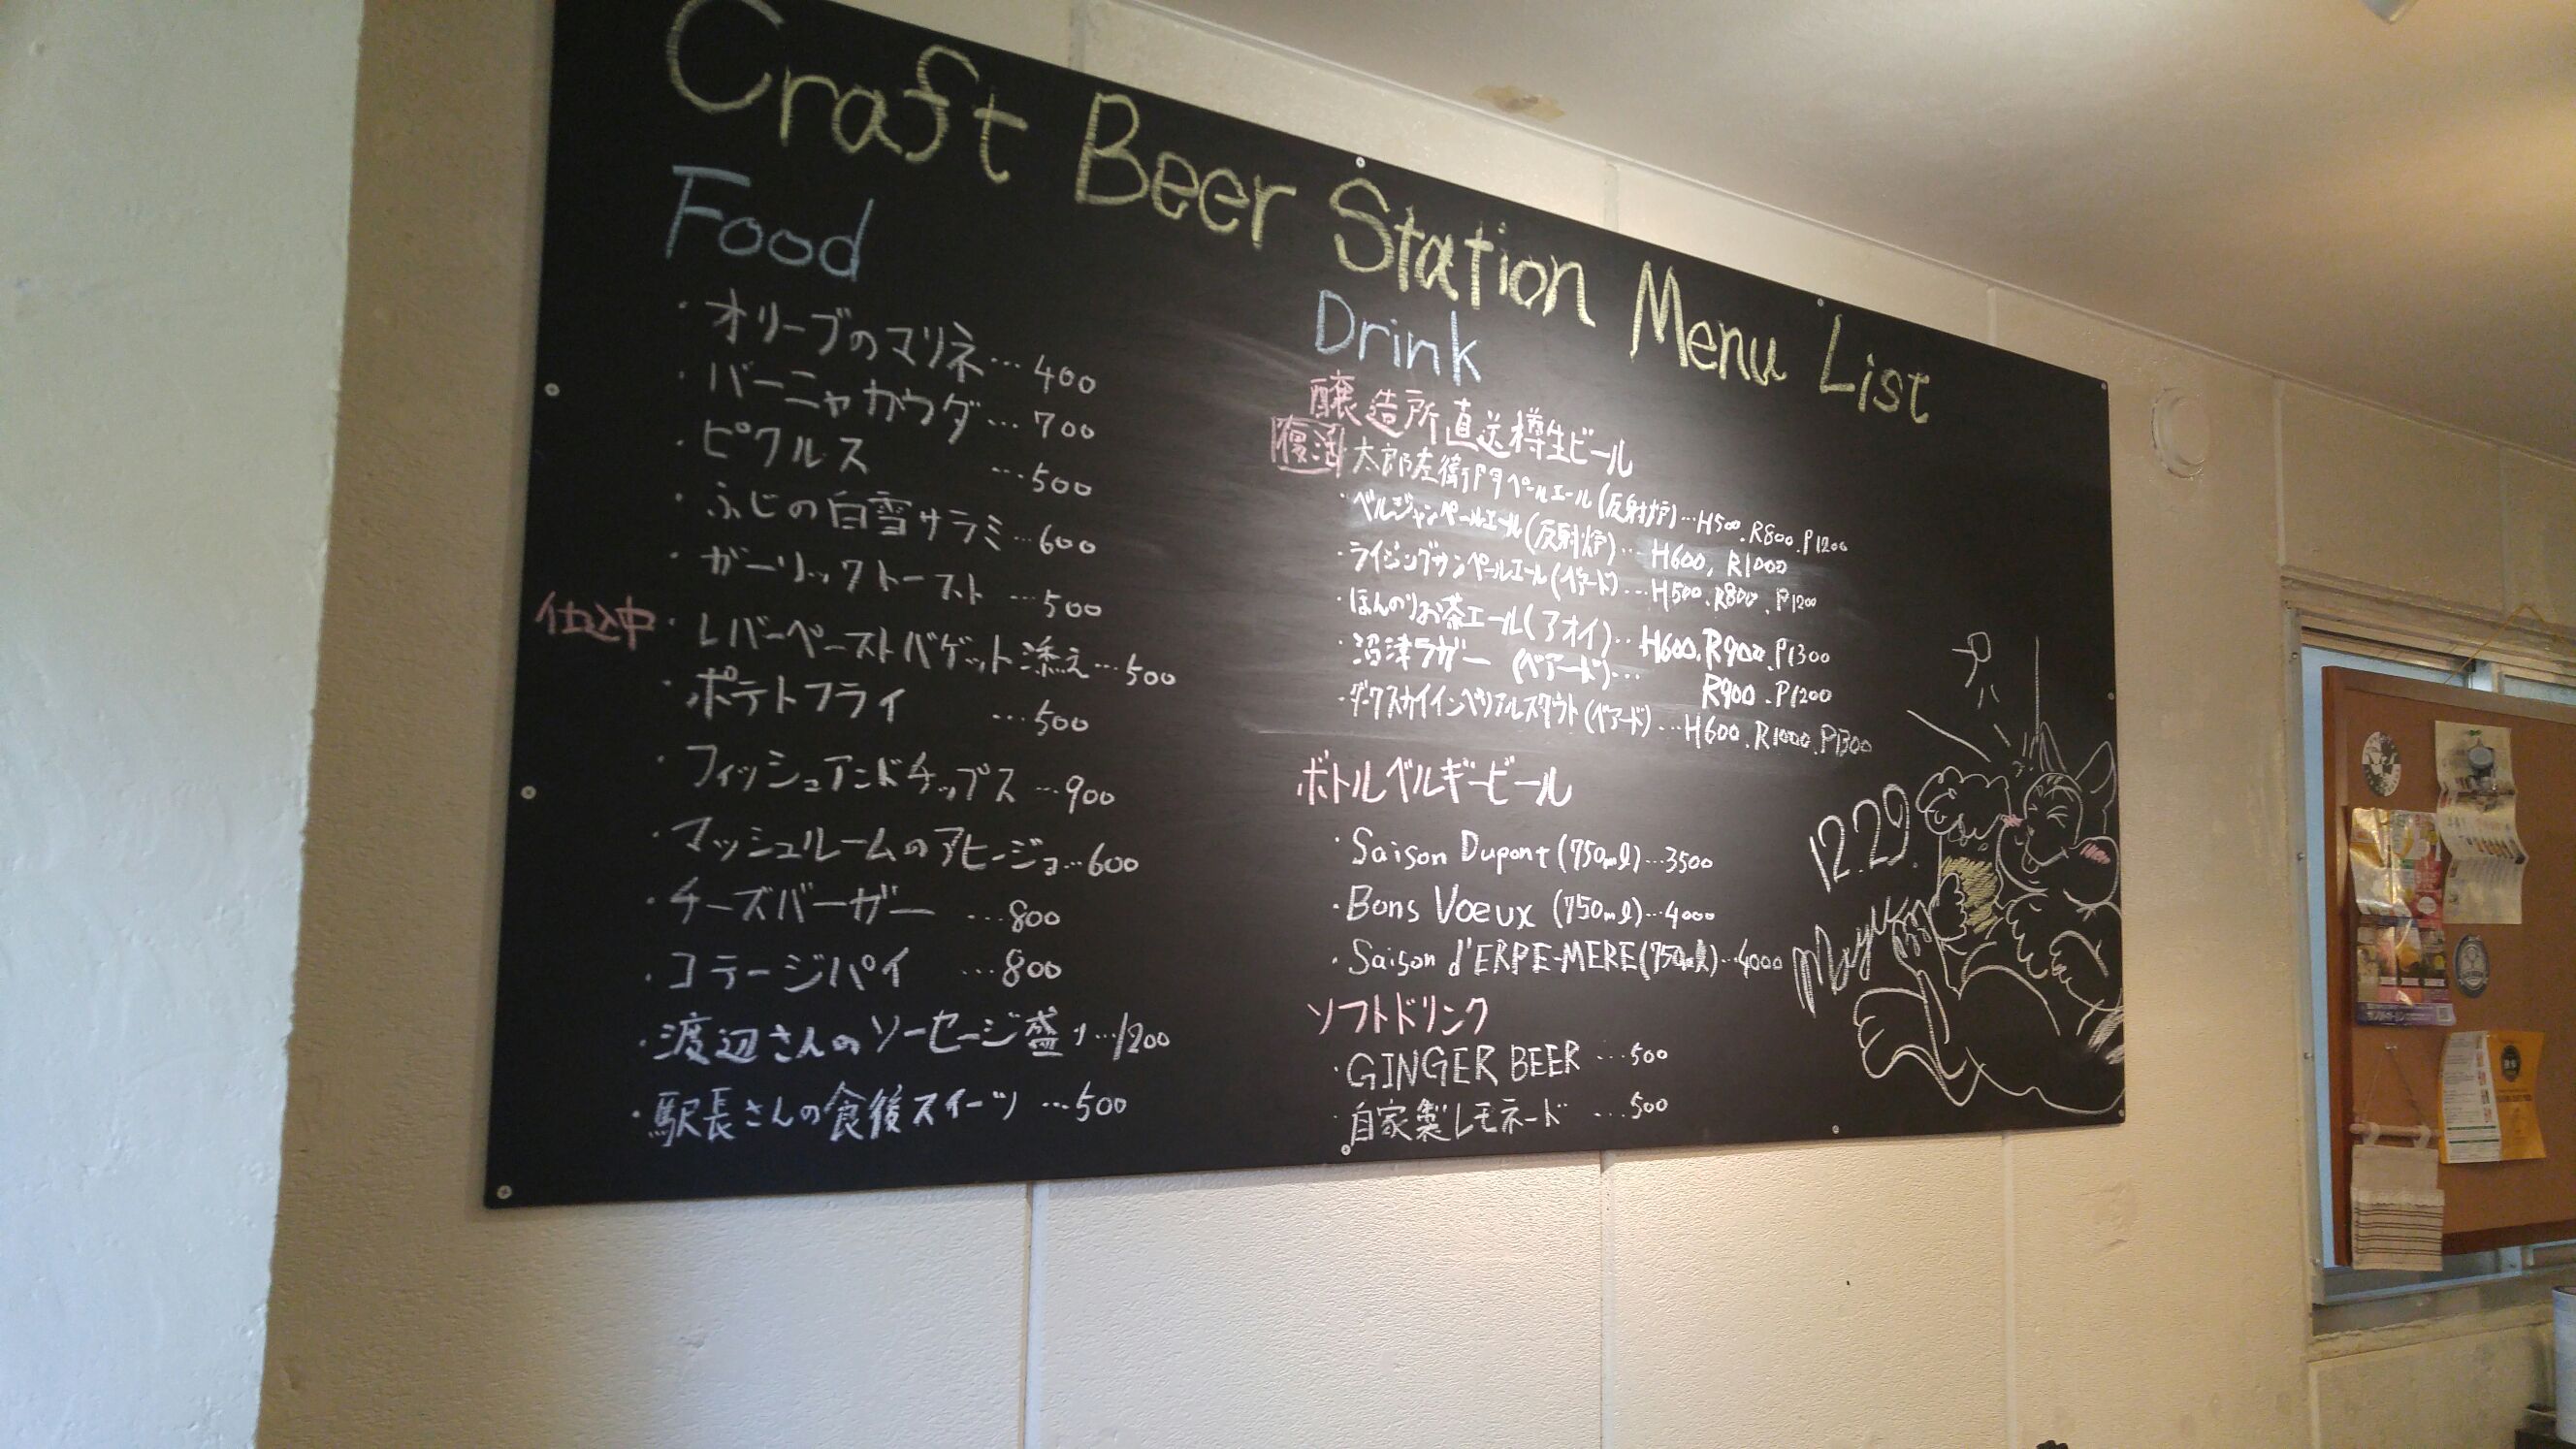 Craft Beer Station Menu List
Food
・オリーブのマリネ…400
・バーニャカウダ…700
・ピクルス …500
・ふじの白雪サラミ…600
・ガーリックトースト …500
仕込中 ・レバーペーストバゲット添え…500
・ポテトフライ …500
・フィッシュアンドチップス …900
・マッシュルームのアヒージョ…600
・チーズバーガー …800
・コテージパイ …800
・渡辺さんのソーセージ盛り…1200
・駅長さんの食後スイーツ …500
Drink
醸造所直送樽生ビール
復活 太郎左衛門ペールエール(反射炉)…H500.R800.P1200
・ベルジャンペールエール(反射炉)…H600, R1000
・ライジングサンペールエール(ベアード)…H500.R800.P1200
・ほんのりお茶エール(アオイ)…H600.R900.P1300
・沼津ラガー (ベアード)… R900.P1200
・ダークスカイインペリアルスタウト(ベアード)…H600.R1000.P1300
ボトルベルギービール
・Saison Dupont(750ml)…3500
・Bons Voeux (750ml)…4000
・Saison d'ERPE-MERE(750ml)…4000
ソフトドリンク
・GINGER BEER …500
・自家製レモネード …500
12.29.